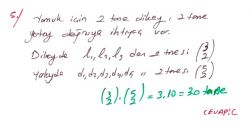 5) Yamuk için 2 tane dikey, 2 tane
yatay doğruya ihtiyaç var.
Dikeyde l₁, l₂, l₃ den 2 tanesi (3 2)
Yatayda d₁, d₂, d₃, d₄, d₅ 2 tanesi (5 2)
(3 2) . (5 2) = 3.10 = 30 tane
CEVAP: C